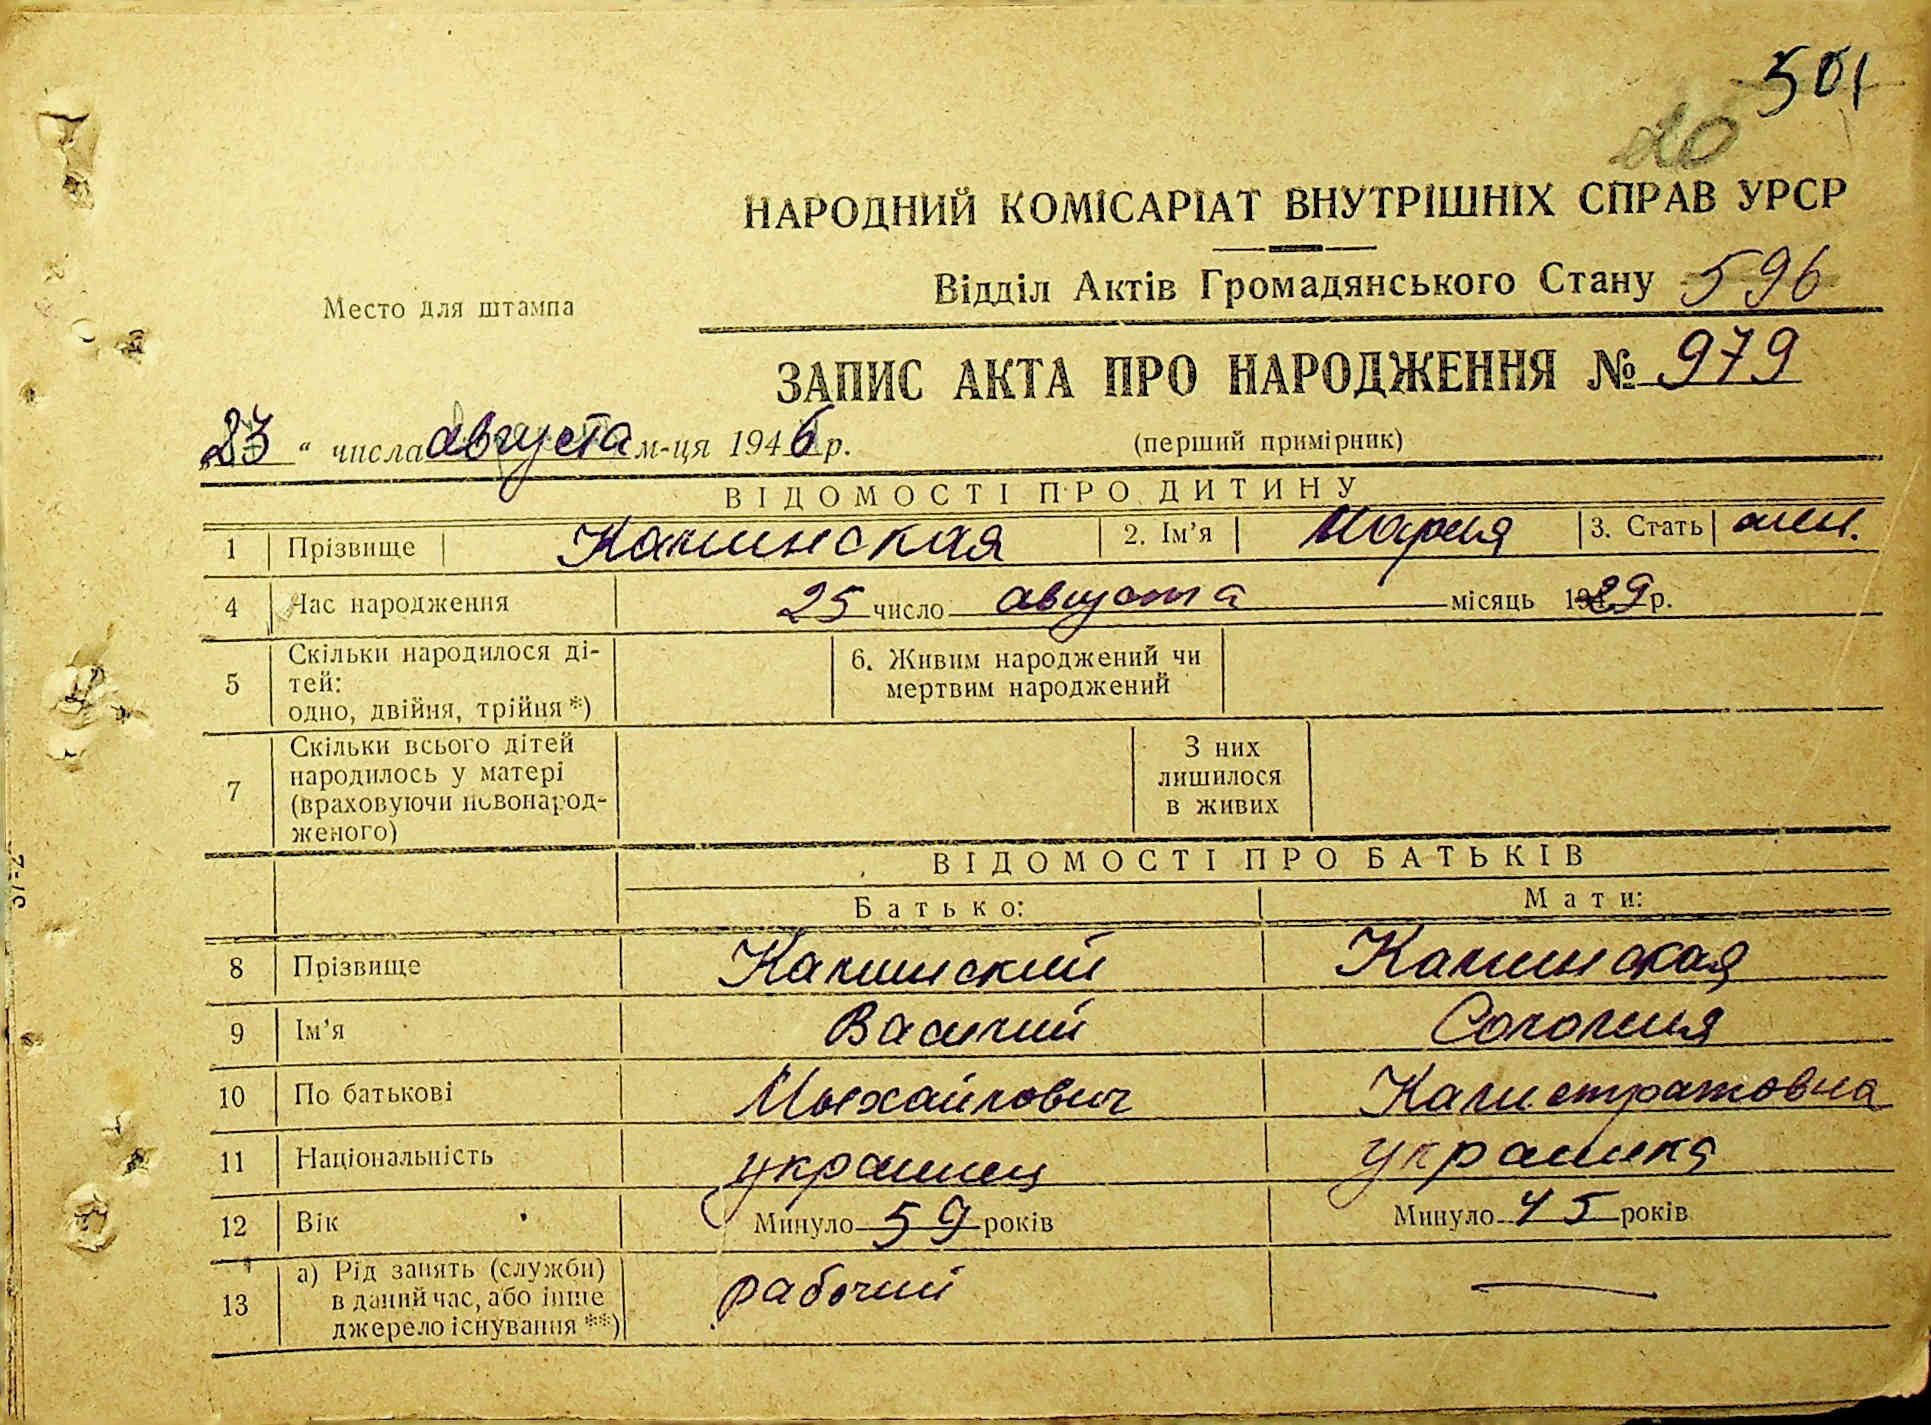 501
20
НАРОДНИЙ КОМІСАРІАТ ВНУТРІШНІХ СПРАВ УРСР
Відділ Актів Громадянського Стану 596
Место для штампа
ЗАПИС АКТА ПРО НАРОДЖЕННЯ № 979
„23“ числа августа м-ця 1946 р. (перший примірник)
ВІДОМОСТІ ПРО ДИТИНУ
1 Прізвище Калинская 2. Ім’я Мария 3. Стать жен.
4 Час народження 25 число августа місяць 1929 р.
5 Скільки народилося ді-
тей:
одно, двійня, трійня *)
6. Живим народжений чи
мертвим народжений
7 Скільки всього дітей
народилось у матері
(враховуючи новонарод-
женого)
З них
лишилося
в живих
ВІДОМОСТІ ПРО БАТЬКІВ
Батько: Мати:
8 Прізвище Калинский Калинская
9 Ім’я Василий Соломия
10 По батькові Михайлович Калистратовна
11 Національність украинец украинка
12 Вік Минуло 59 років Минуло 45 років
13 а) Рід занять (служби)
в даний час, або інше
джерело існування **)
рабочий —